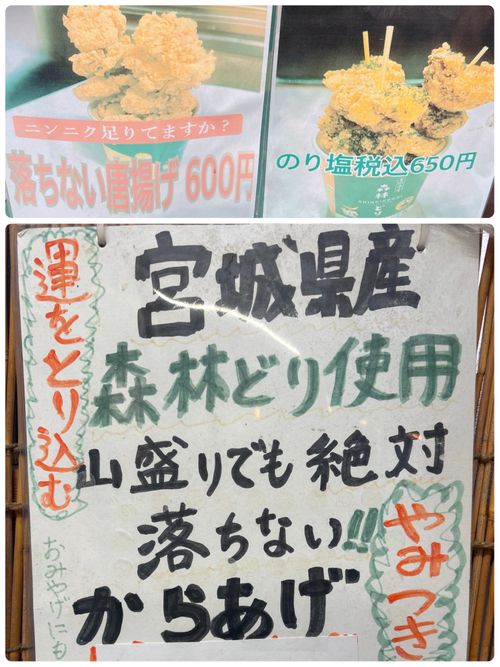 ニンニク足りてますか？
落ちない唐揚げ 600円
のり塩税込650円
森林どり
運をとり込む
宮城県産
森林どり使用
山盛りでも絶対
落ちない!!
からあげ
やみつき
おみやげにも